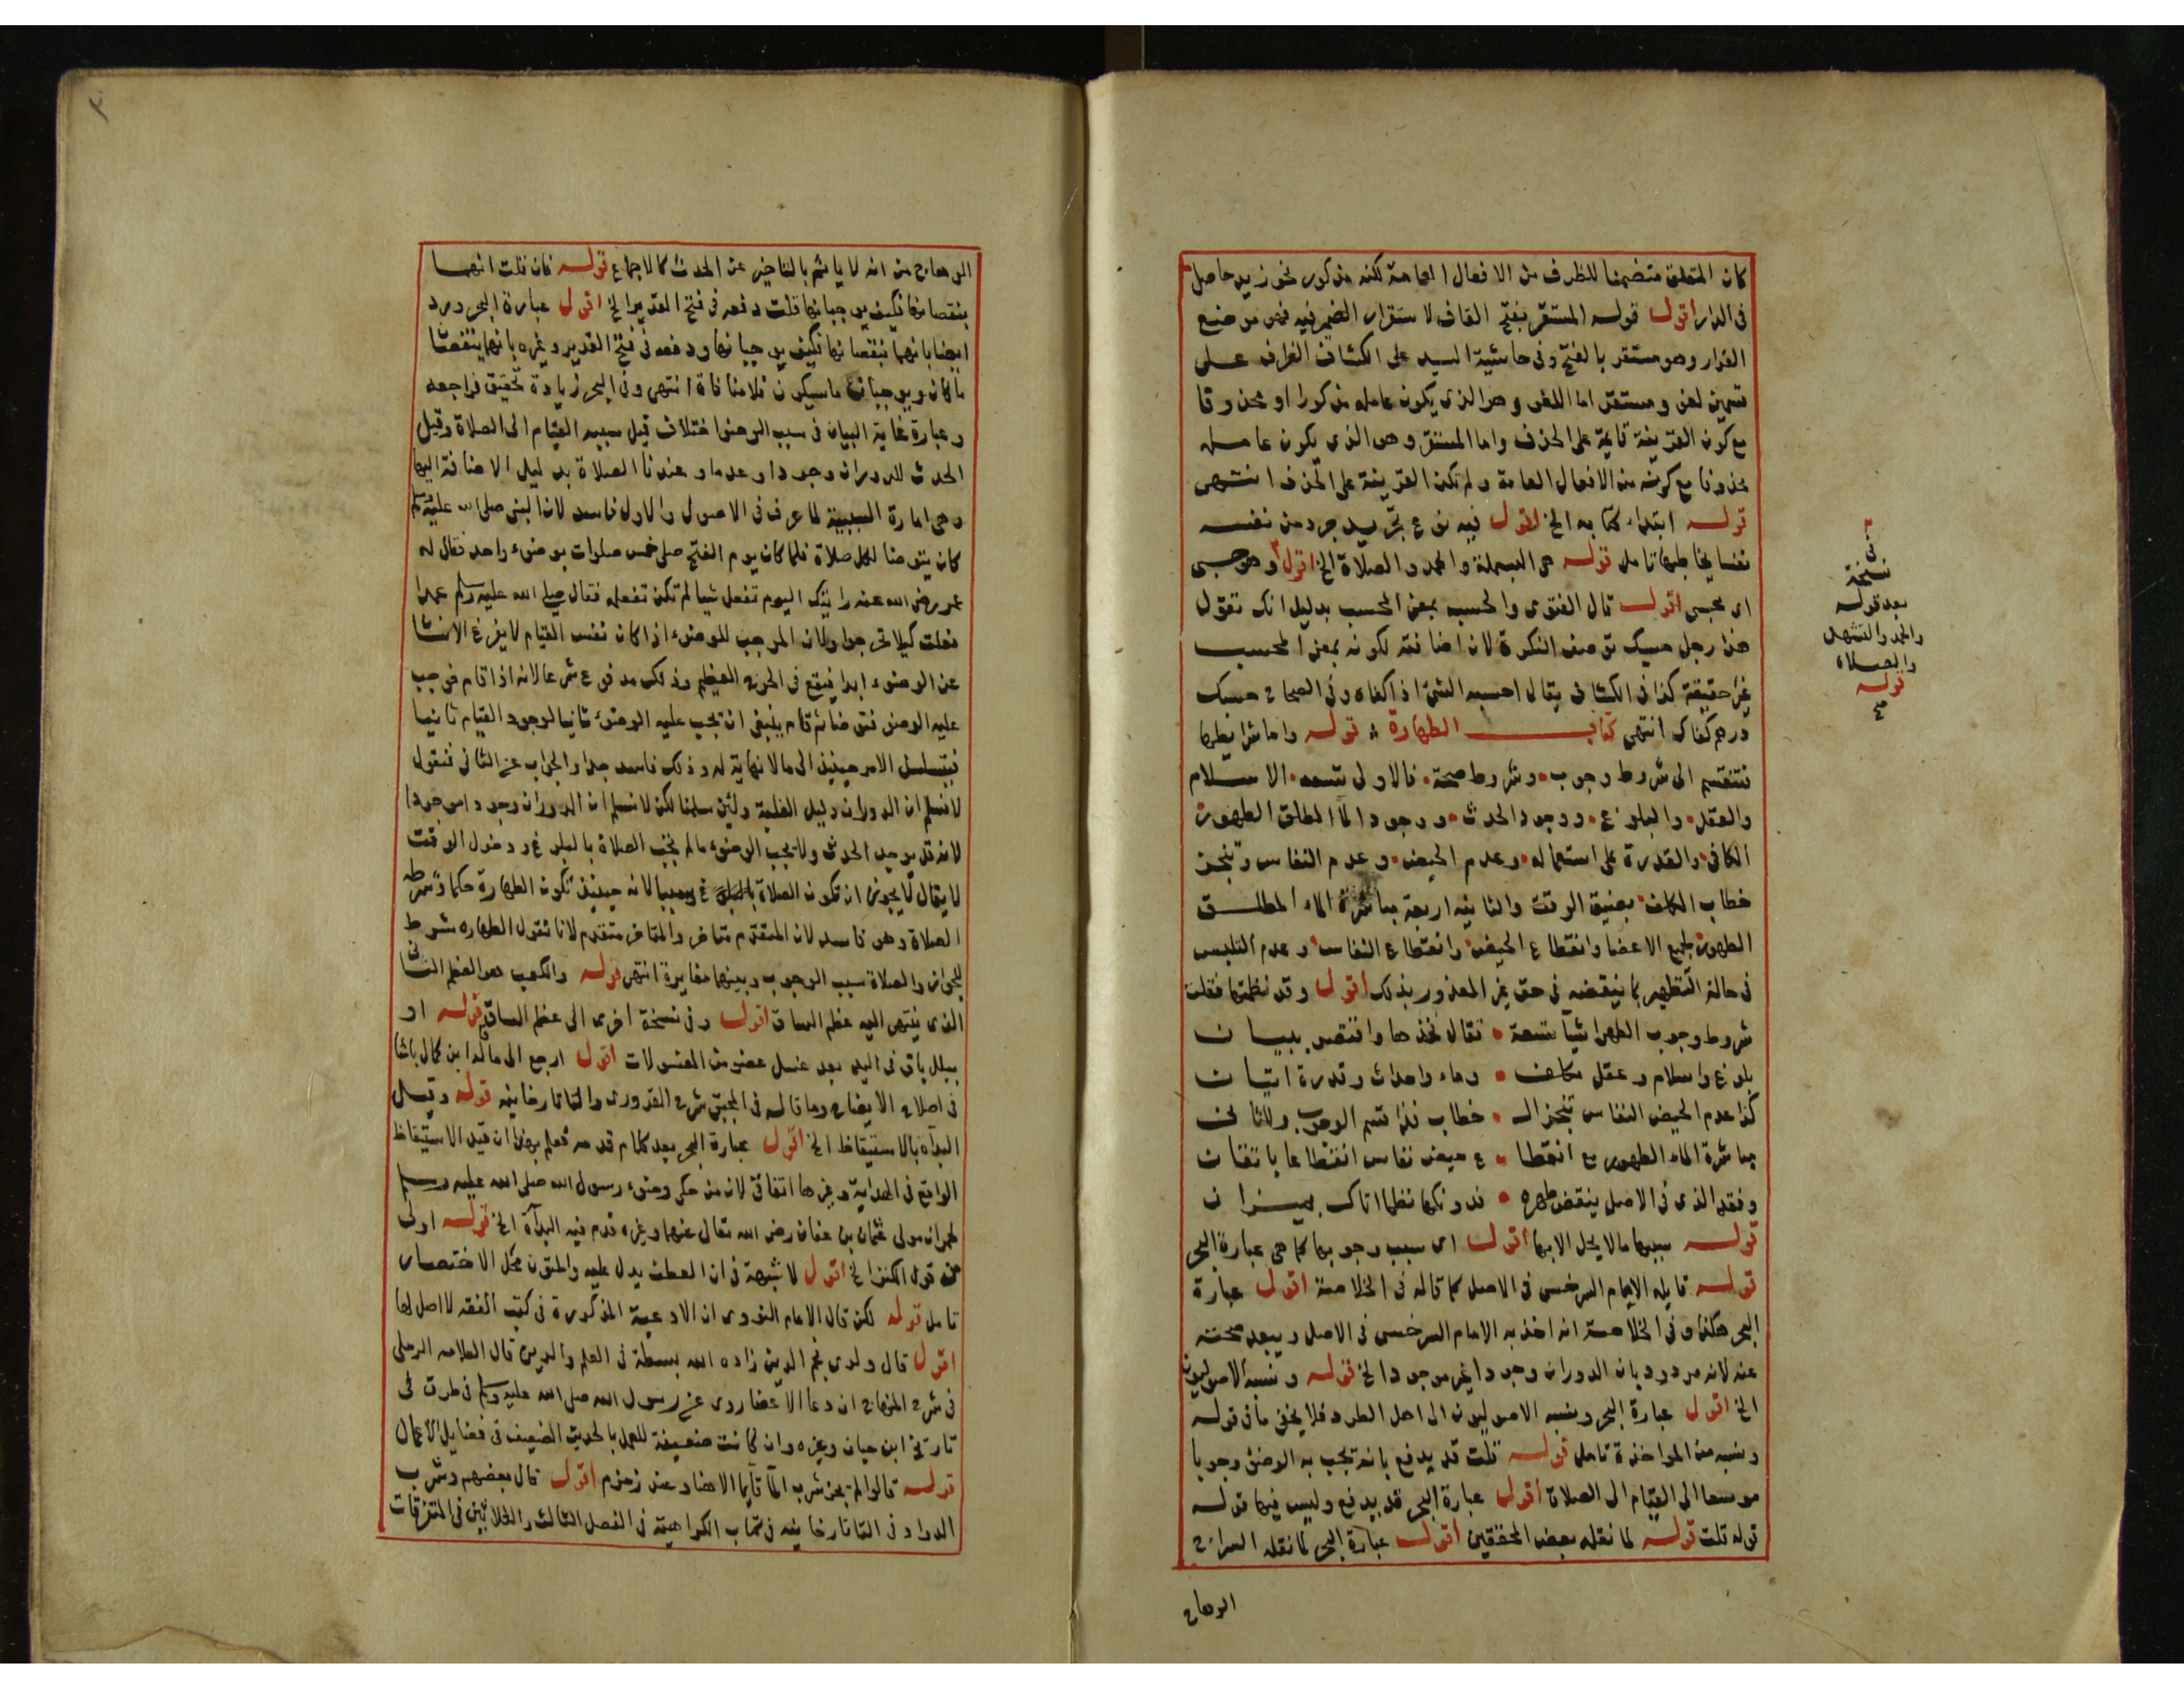 كان المتعلق متضمنا للظرف من الافعال العامة لكنه مذكور نحو زيد حاصل
في الدار اقول قوله المستقر بفتح القاف لاستقرار الضمير فيه فهو موضع
القرار وهو مستقر بالفتح وفي حاشية السيد على الكشاف الظرف على
قسمين لغو ومستقر اما اللغو وهو الذي يكون عامله مذكورا او محذوفا
مع كون القرينة قائمة على الحذف واما المستقر وهو الذي يكون عامله
محذوفا مع كونه من الافعال العامة ولم تكن القرينة على الحذف انتهى
قوله ابتداء كتابه الخ اقول فيه نوع تجريد جرد من نفسه
نفسا يخاطبها تامل قوله هي البسملة والحمد والصلاة الخ اقول وهو حسبي
اي محسبي اقول قال الغنوي والحسب بمعنى المحسب بدليل انك تقول
هذا رجل حسبك توصف النكرة لان اضافته لكونه بمعنى المحسب
غير حقيقة كذا في الكشاف يقال احسبه الشئ اذا كفاه وفي الصحاح حسبك
درهم كفاك انتهى كتاب الطهارة قوله واما شرايطها
فتنقسم الى شروط وجوب وشروط صحة فالاولى تسعه الاسلام
والعقل والبلوغ ووجود الحدث ووجود الما المطلق الطهور
الكافي والقدرة على استعماله وعدم الحيض وعدم النفاس وتنجز
خطاب المكلف بضيق الوقت والثانيه اربعة مباشرة الماء المطلق
الطهور لجميع الاعضا وانقطاع الحيض وانقطاع النفاس وعدم التلبس
في حالة التطهير بما ينقضه في حق غير المعذور بذلك اقول وقد نظمتها فقلت
شروط وجوب الطهر اشيا تسعة فقال نخذها وافتقمر ببيان
بلوغ واسلام وعقل مكلف وماء واحداث وقدرة اتيان
كذا عدم الحيض النفاس تنجز ال خطاب فذا قسم الوجوب وللثان
مباشرة الماء الطهور مع انقطا ع حيض نفاس انقطاعا باتقان
وفقد الذي في الاصل ينقض طهره فدونكها نظما اتاك بميزان
قوله سببها مالا يحل الا بها اقول اي سبب وجوبها كما هي عبارة البحر
قوله قايله الامام السرخسي في الاصل كما قاله في الخلاصة اقول عبارة
البحر هكذا وفي الخلاصة انه اخذ به الامام السرخسي في الاصل ويبعد صحته
عنه لانه مردود بان الدوران وجودا غير موجود الخ قوله ونسبه الاصوليون
الخ اقول عبارة البحر ونسبه الاصوليون الى اهل الطرد فلا يخفى ما في قوله
ونسبه من المواخذة تامل قوله قلت قد يدفع بانه تجب به الوضوء وجوبا
موسعا الى القيام الى الصلاة اقول عبارة البحر قد يدفع وليس فيها قوله
قوله قلت قوله لما نقله بعض المحققين اقول عبارة البحر لما نقله السراج
الوهاج
في
نسخة
بعد قوله
والحمد والتشهد
والصلاة
قوله
صح
٣
الوهاج من انه لا ياثم بالتاخير عن الحدث كالاجماع قوله فان قلت انهما
ينقضانها فكيف يوجبانها قلت دفعه في فتح القدير الخ اقول عبارة البحر ورد
ايضا بانهما ينقضانها فكيف يوجبانها ودفعه في فتح القدير وغيره بانها ينقضا
ما كان ويوجبان ما سيكون فلا منافاة انتهى وفي البحر زيادة تحقيق فراجعه
وعبارة غاية البيان في سبب الوضوا ختلاف قيل سببه القيام الى الصلاة وقيل
الحدث للدوران وجودا وعدما وعندنا الصلاة بدليل الاضافة اليها
وهي امارة السببية لما عرف في الاصول والاول فاسد لان النبي صلى الله عليه وسلم
كان يتوضا لكل صلاة فلما كان يوم الفتح صلى خمس صلوات بوضوء واحد فقال له
عمر رضي الله عنه رايتك اليوم تفعل شيا لم تكن تفعله فقال صلى الله عليه وسلم عمدا
فعلت كيلا تحرجوا ولان الموجب للوضوء اذا كان نفس القيام لا يفرغ الانسا
عن الوضوء ابدا فيقع في الحرج العظيم وذلك مدفوع شرعا لانه اذا قام فوجب
عليه الوضو فتوضا ثم قام ينبغي ان تجب عليه الوضوء ثانيا لوجود القيام ثانيا
فيتسلسل الامر حينئذ الى مالا نهاية له وذلك فاسد جدا والجواب عن الثاني فنقول
لا نسلم ان الدوران دليل العلية ولئن سلمنا لكن لا نسلم ان الدوران وجودا موجودا
لانه قد يوجد الحدث ولا تجب الوضوء مالم تجب الصلاة بالبلوغ ودخول الوقت
لا يقال لا يجوز ان تكون الصلاة سببا لانه حينئذ تكون الطهارة حكما وشرط
الصلاة وهو فاسد لان المتقدم متاخر والمتاخر متقدم لانا نقول الطهاره شرط
للجواز والصلاة سبب الوجوب وبينهما مغايرة انتهى قوله والكعب هو العظم الناتئ
الذي ينتهي اليه عظم الساق اقول وفي نسخة اخرى الى عظم الساق قوله او
ببلل باق في اليد بعد غسل عضو من المغسولات اقول ارجع الى ما قاله ابن كمال باشا
في اصلاح الايضاح وما قاله في المجتبى شرح القدوري والتاتارخانيه قوله وقيل
البدآة بالاستيقاظ الخ اقول عبارة البحر بعد كلام قدمه فعلم بهذا ان قيد الاستيقاظ
الواقع في الهداية وغيرها اتفاقي لان من حكى وضوء رسول الله صلى الله عليه وسلم
لحمران مولى عثمان بن عفان رضي الله تعالى عنهما وغيره قدم فيه البدآة الخ قوله اولى
من قول الكنز الخ اقول لا شبهة في ان العطف يدل عليه والمتون محل الاختصار
تامل قوله لكن قال الامام النووي ان الادعية المذكورة في كتب الفقه لا اصل لها
اقول قال ولدي نجم الدين زاده الله بسطة في العلم والدين قال العلامه الرملي
في شرح المنهاج ان دعا الاعضا روي عن رسول الله صلى الله عليه وسلم في طرق في
تاريخ ابن حبان وغيره وان كانت ضعيفة للعمل بالحديث الضعيف في فضايل الاعمال
قوله قالوا لم يجز شرب الما قايما الا هنا وعند زمزم اقول قال بعضهم وشرب
الدواد في التاتارخانيه في كتاب الكراهية في الفصل الثالث والثلاثين في المتفرقات